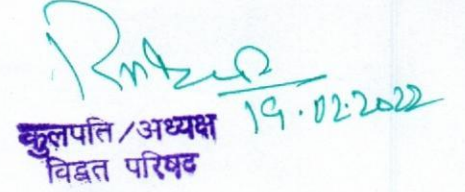 19.02.2022
कुलपति / अध्यक्ष
विद्वत परिषद